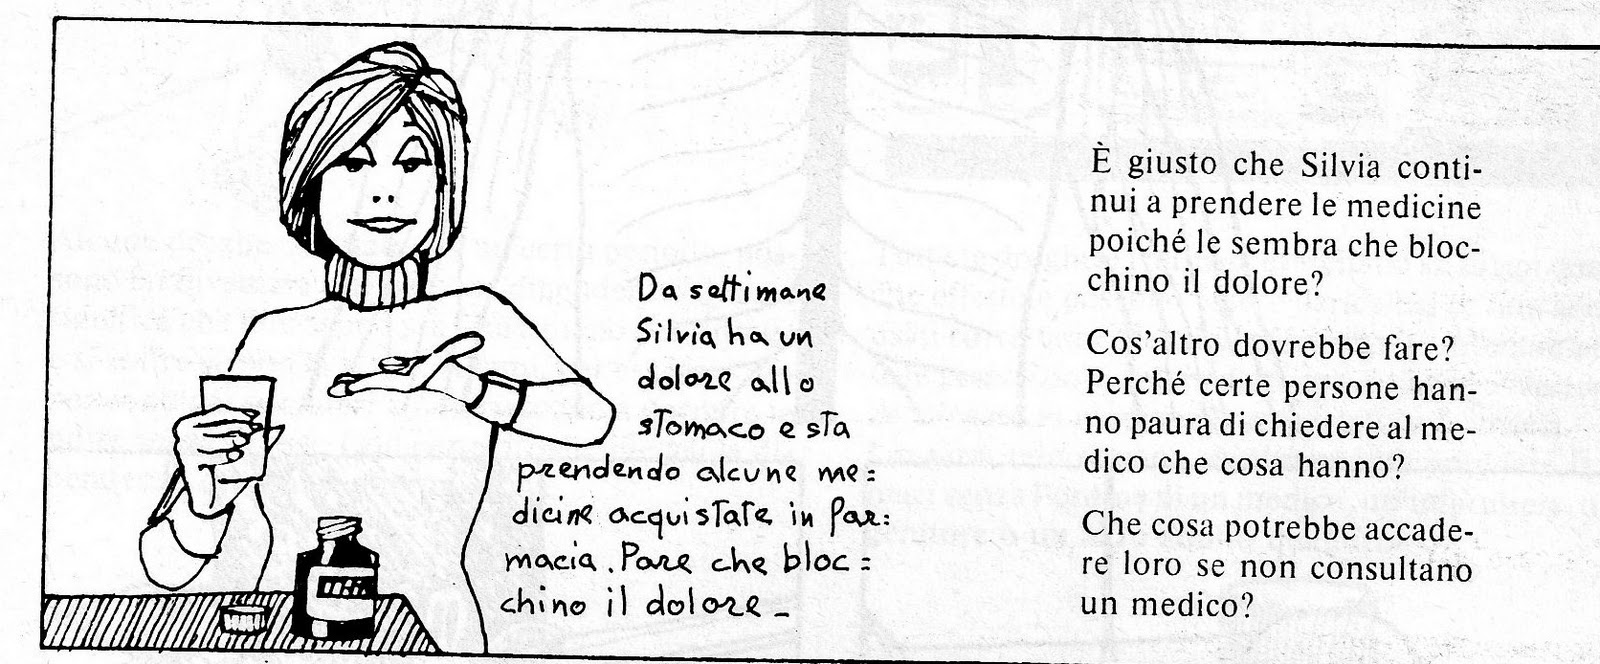 Da settimane
Silvia ha un
dolore allo
stomaco e sta
prendendo alcune me=
dicine acquistate in far:
macia. Pare che bloc=
chino il dolore_
È giusto che Silvia conti-
nui a prendere le medicine
poiché le sembra che bloc-
chino il dolore?
Cos'altro dovrebbe fare?
Perché certe persone han-
no paura di chiedere al me-
dico che cosa hanno?
Che cosa potrebbe accade-
re loro se non consultano
un medico?